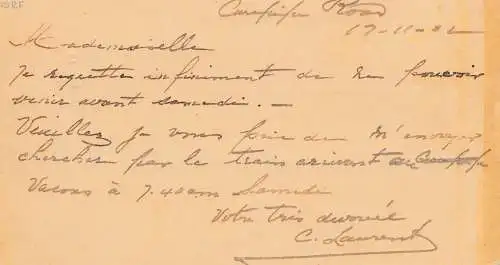 Curepipe Road
17-11-82
Mademoiselle
Je regrette infiniment de ne pouvoir
venir avant samedi. —
Veuillez je vous prie de m'envoyer
chercher par le train arrivant au Curepipe
Vacoas à 7.40 am Samedi
Votre très dévoué
C. Laurent